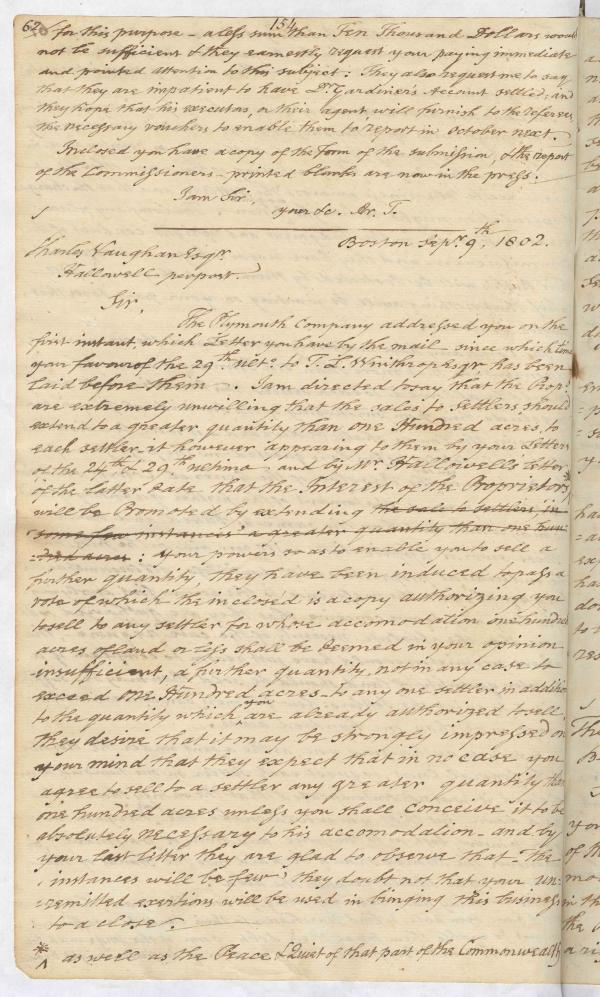 62 154
for this purpose - a less sum than Ten Thousand Dollars would
not be sufficient & they earnestly request your paying immediate
and pointed attention to this subject: They also request me to say
that they are impatient to have Dr. Gardiner's Account settled; and
they hope that his executors, or their agent will furnish to the referees
the necessary vouchers to enable them to report in October next.
Inclosed you have a copy of the form of the submission, & the report
of the Commissioners - printed blanks are now in the press.
I am Sir,
your &c. Ar. T.
Boston Sepr. 9th, 1802.
Charles Vaughan Esqr.
Hallowell per post.
Sir,
The Plymouth Company addressed you on the
first instant, which Letter you have by the mail - since which time
your favour of the 29th ulto. to T. L. Winthrop Esqr has been
laid before them. I am directed to say that the Propr.
are extremely unwilling that the sales to settlers should
extend to a greater quantity than one Hundred acres, to
each settler, it however appearing to them by your Letters
of the 24th & 29th ultimo and by Mr. Hallowell's Letter
of the latter date that the Interest of the Proprietors*
will be Promoted by extending the sale to settlers in
some few instances a greater quantity than one hun
-dred acres: your powers so as to enable you to sell a
further quantity, they have been induced to pass a
vote of which the inclosed is a copy authorizing you
to sell to any settler for whose accomodation one hundred
acres of land or less shall be deemed in your opinion
insufficient, a further quantity, not in any case to
exceed one Hundred acres - to any one settler in addition
to the quantity which you are already authorized to sell,
they desire that it may be strongly impressed on
your mind that they expect that in no case you
agree to sell to a settler any greater quantity than
one hundred acres unless you shall conceive it to be
absolutely necessary to his accomodation - and by
your last letter they are glad to observe that "The
instances will be few" they doubt not that your un-
-remitted exertions will be used in bringing this business
to a close.
* as well as the Peace & Quiet of that part of the Commonwealth